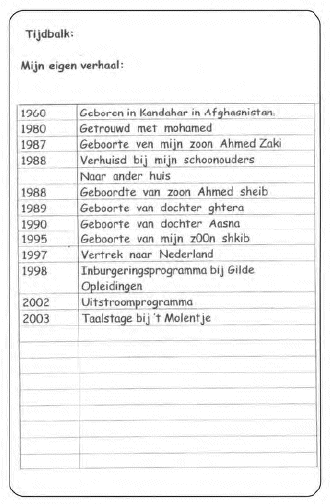 Tijdbalk:
Mijn eigen verhaal:
1960 Geboren in Kandahar in Afghasnistan.
1980 Getrouwd met mohamed
1987 Geboorte ven mijn zoon Ahmed Zaki
1988 Verhuisd bij mijn schoonouders
Naar ander huis
1988 Geboordte van zoon Ahmed sheib
1989 Geboorte van dochter ghtera
1990 Geboorte van dochter Aasna
1995 Geboorte van mijn z00n shkib
1997 Vertrek naar Nederland
1998 Inburgeringsprogramma bij Gilde
Opleidingen
2002 Uitstroomprogramma
2003 Taalstage bij 't Molentje